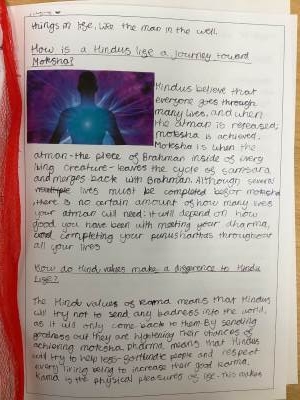 things in life, like the man in the well.
How is a Hindus life a journey toward
Moksha?
Hindus believe that
everyone goes through
many lives, and when
the atman is released,
moksha is achieved.
Moksha is when the
atman - the piece of Brahman inside of every
living creature - leaves the cycle of samsara
and merges back with Brahman. Although several
lives must be completed before moksha
, there is no certain amount of how many lives
your atman will need: it will depend on how
good you have been with meeting your dharma,
and completing your purusharthas throughout
all your lives
How do Hindu values make a difference to Hindu
Life?
The Hindu values of karma means that Hindus
will try not to send any badness into the world,
as it will only come back to them. By sending
goodness out they are hightening their chances of
achieving moksha. Dharma, means that Hindus
will try to help less-fortunate people and respect
every living being to increase their good karma.
Kama is the physical pleasures of life - this makes